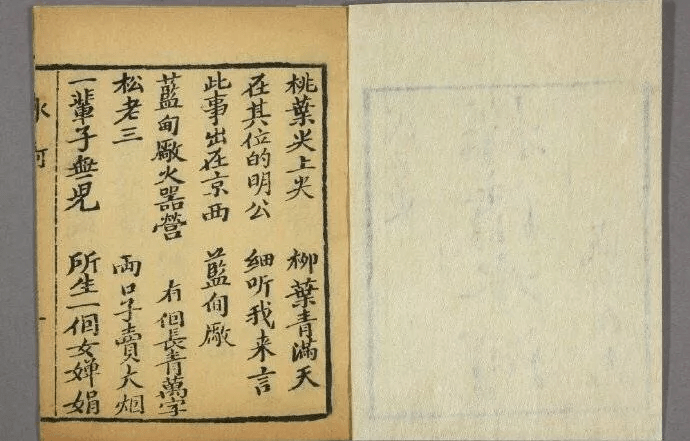 桃葉尖上尖 柳葉青滿天
在其位的明公 細听我来言
此事出在京西 藍甸廠
藍甸廠火器營 有個長青萬字
松老三 両口子賣大烟
一輩子無児 所生一個女嬋娟